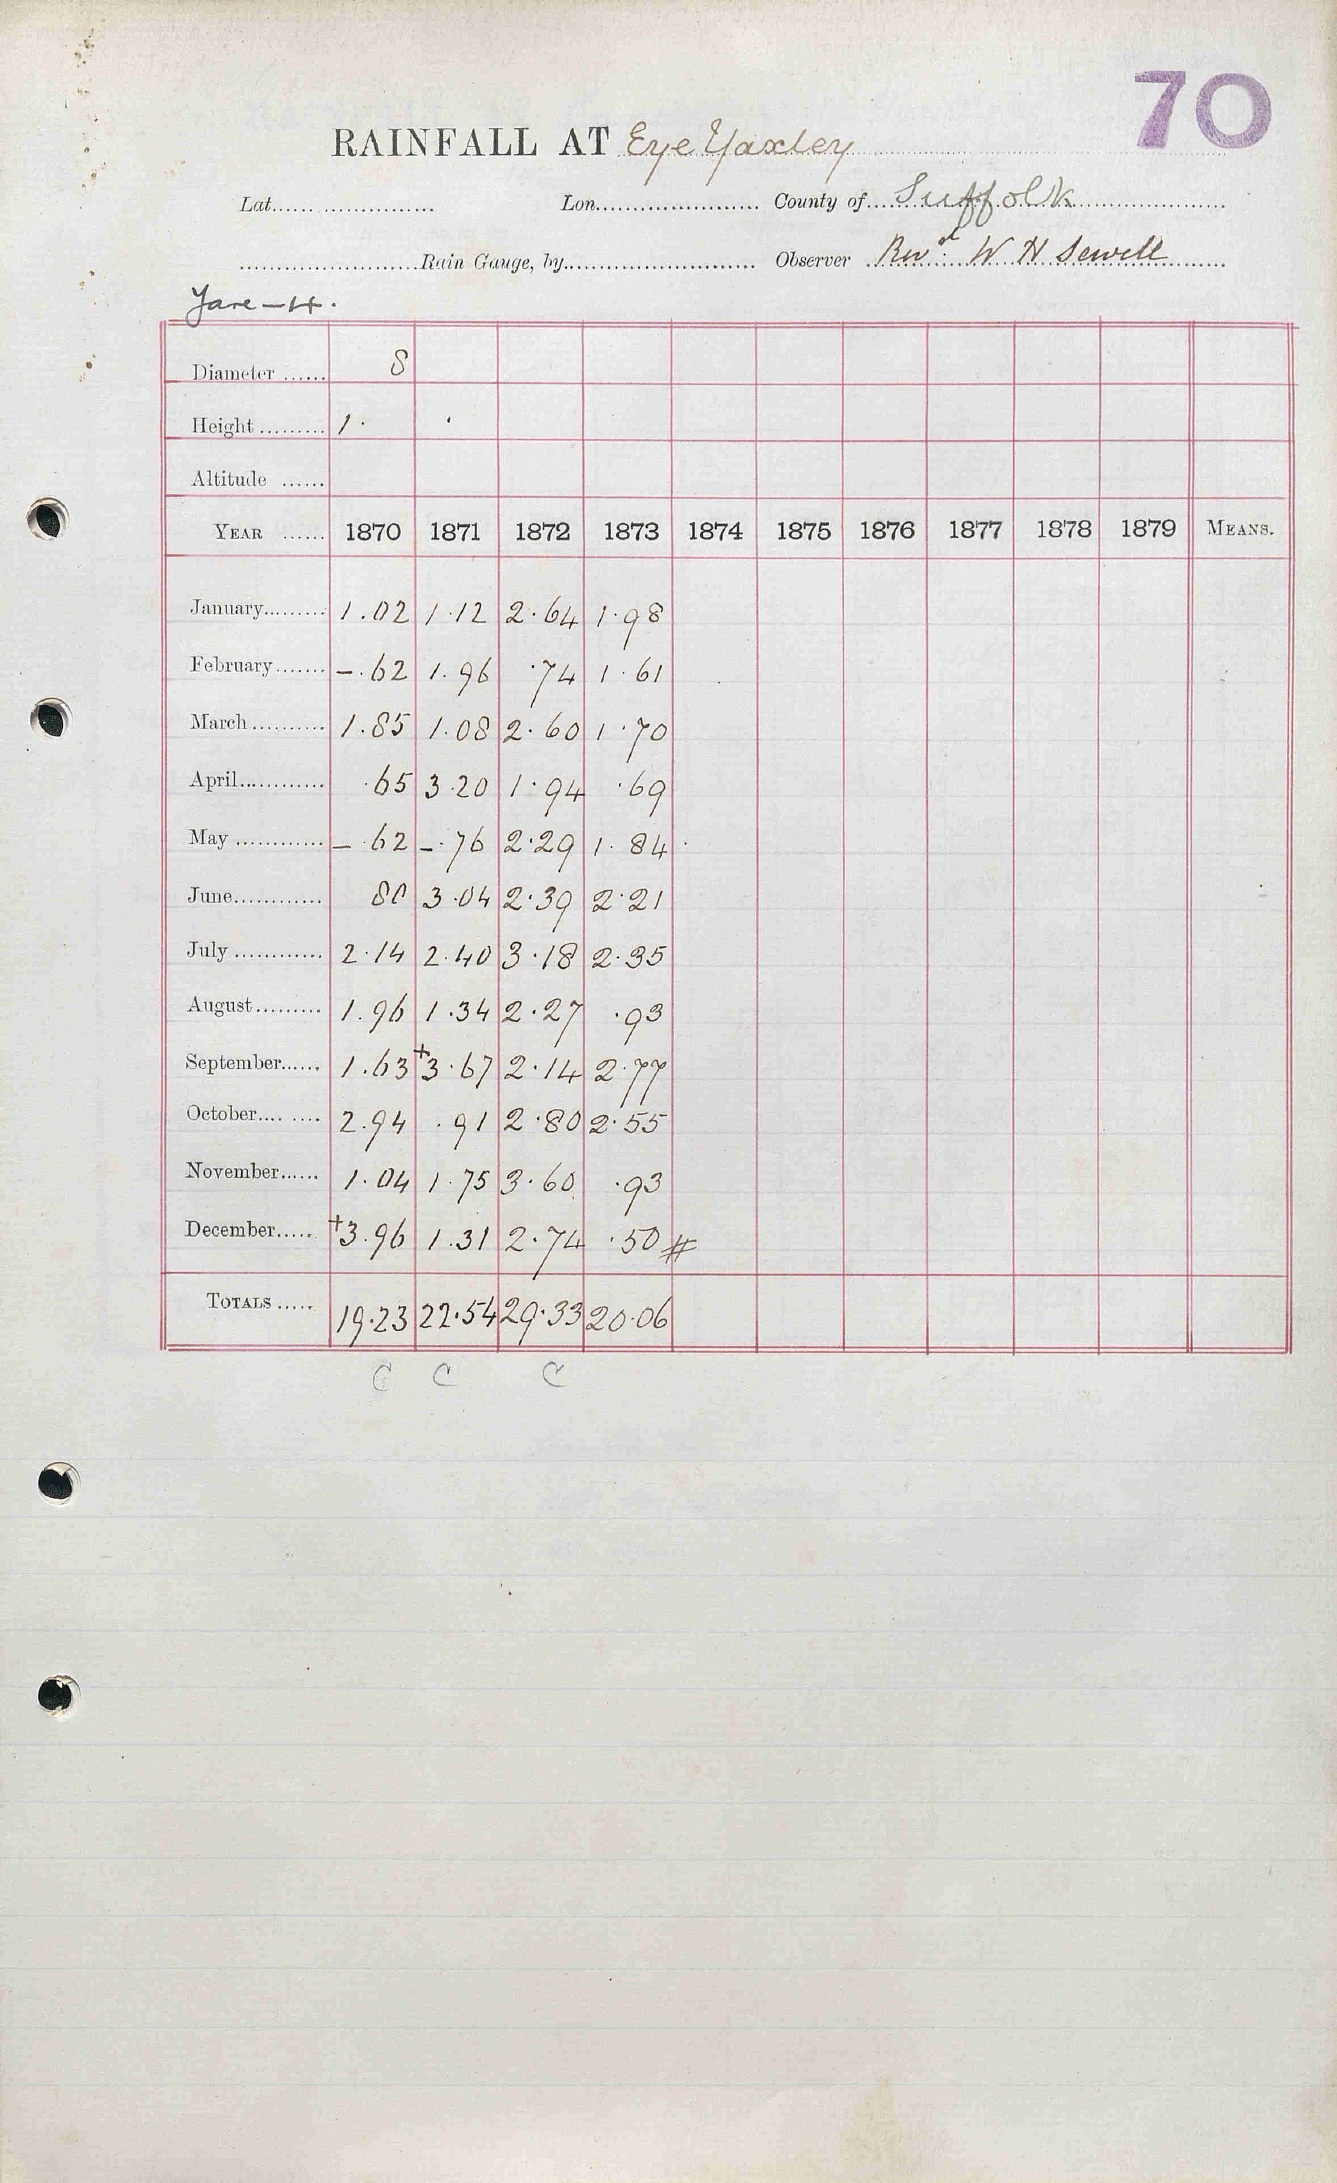 70
RAINFALL AT Eye Yaxley
Lat. Lon. County of Suffolk
Rain Gauge, by Observer Revd. W H Sewell
Yare - 4.
Diameter 8
Height 1.
Altitude
YEAR 1870 1871 1872 1873 1874 1875 1876 1877 1878 1879 MEANS.
January 1.02 1.12 2.64 1.98
February -.62 1.96 .74 1.61
March 1.85 1.08 2.60 1.70
April .65 3.20 1.94 .69
May -.62 -.76 2.29 1.84
June 80 3.04 2.39 2.21
July 2.14 2.40 3.18 2.35
August 1.96 1.34 2.27 .93
September 1.63 +3.67 2.14 2.77
October 2.94 .91 2.80 2.55
November 1.04 1.75 3.60 .93
December +3.96 1.31 2.74 .50 #
TOTALS 19.23 22.54 29.33 20.06
C C C